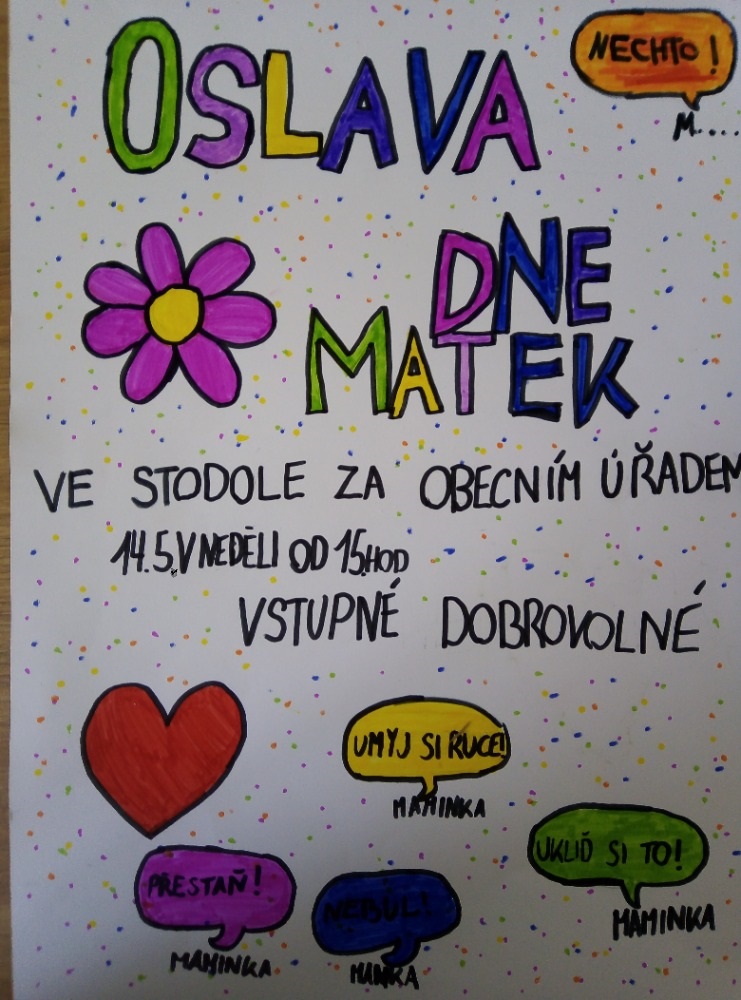 OSLAVA
NECHTO!
M....
DNE
MATEK
VE STODOLE ZA OBECNÍM ÚŘADEM
14.5. V NEDĚLI OD 15HOD
VSTUPNÉ DOBROVOLNÉ
UMYJ SI RUCE!
MAMINKA
UKLIĎ SI TO!
MAMINKA
PŘESTAŇ!
MAMINKA
NEBUL!